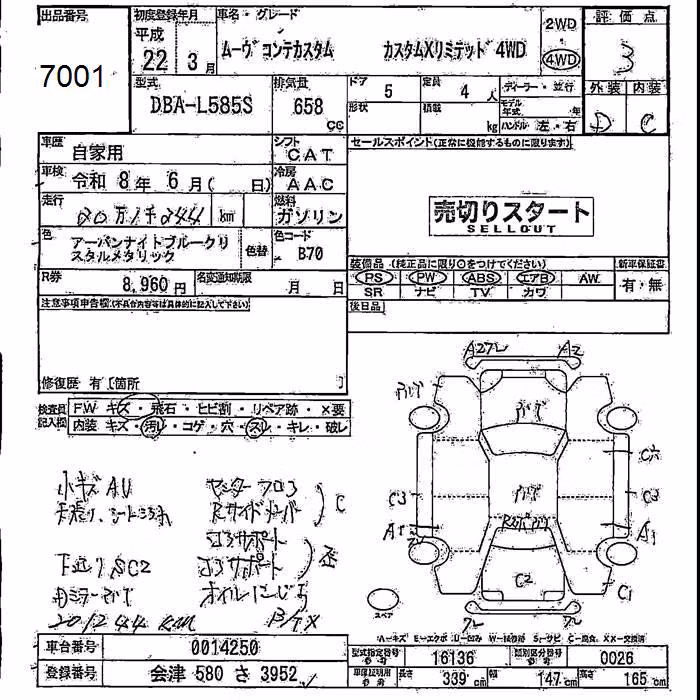 出品番号
7001
初度登録年月
平成
22年 3月
車名・グレード
ムーヴ コンテカスタム カスタムXリミテッド 4WD
2WD
4WD
評価点
3
外装 内装
D C
型式
DBA-L585S
排気量
658
cc
ドア
5
形状
定員
4 人
積載
kg
ディーラー・並行
モデル年式 年
ハンドル 左・右
車歴
自家用
シフト
CAT
車検
令和 8年 6月( 日)
冷房
AAC
走行
20万1千244 km
燃料
ガソリン
色
アーバンナイトブルークリスタルメタリック
色替
色コード
B70
R券
8,960円
名変通知期限
月 日
セールスポイント(正常に機能するものに限ります)
売切りスタート
SELLOUT
装備品 (純正品に限り○をつけてください)
新車保証書
PS PW ABS エアB AW
有・無
SR ナビ TV カワ
後日品
注意事項申告欄(不具合内容等は具体的に記入して下さい)
修復歴 有〔箇所 〕
検査員記入欄
F.W キズ・飛石・ヒビ割・リペア跡・×要
内装 キズ・汚レ・コゲ・穴・スレ・キレ・破レ
A27レ
A2
C3
A1
C1
C2
小キズ AU
センターフロア
C
下廻りSC2
201244km
スペア
A-キズ E-エクボ U-凹み W-補修跡 S-サビ C-腐食 XX-交換済
車台番号
0014250
登録番号
会津 580 さ 3952
型式指定番号
16136
類別区分番号
0026
車庫証明用
長さ 339cm 幅 147cm 高さ 165cm